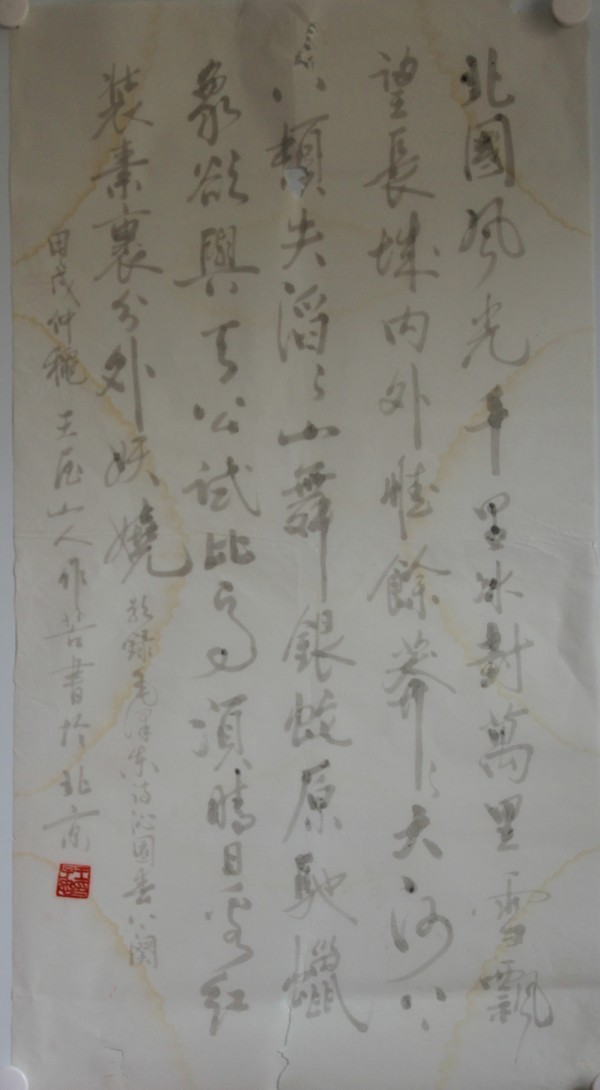 北國风光千里冰封萬里雪飄
望長城内外惟餘莽〻大河上
下頓失滔〻山舞銀蛇原馳蠟
象欲與天公試比高須晴日看紅
装素裹分外妖嬈
錄毛澤东诗沁园春上闋
甲戌仲穐王屋山人作苦書於北京